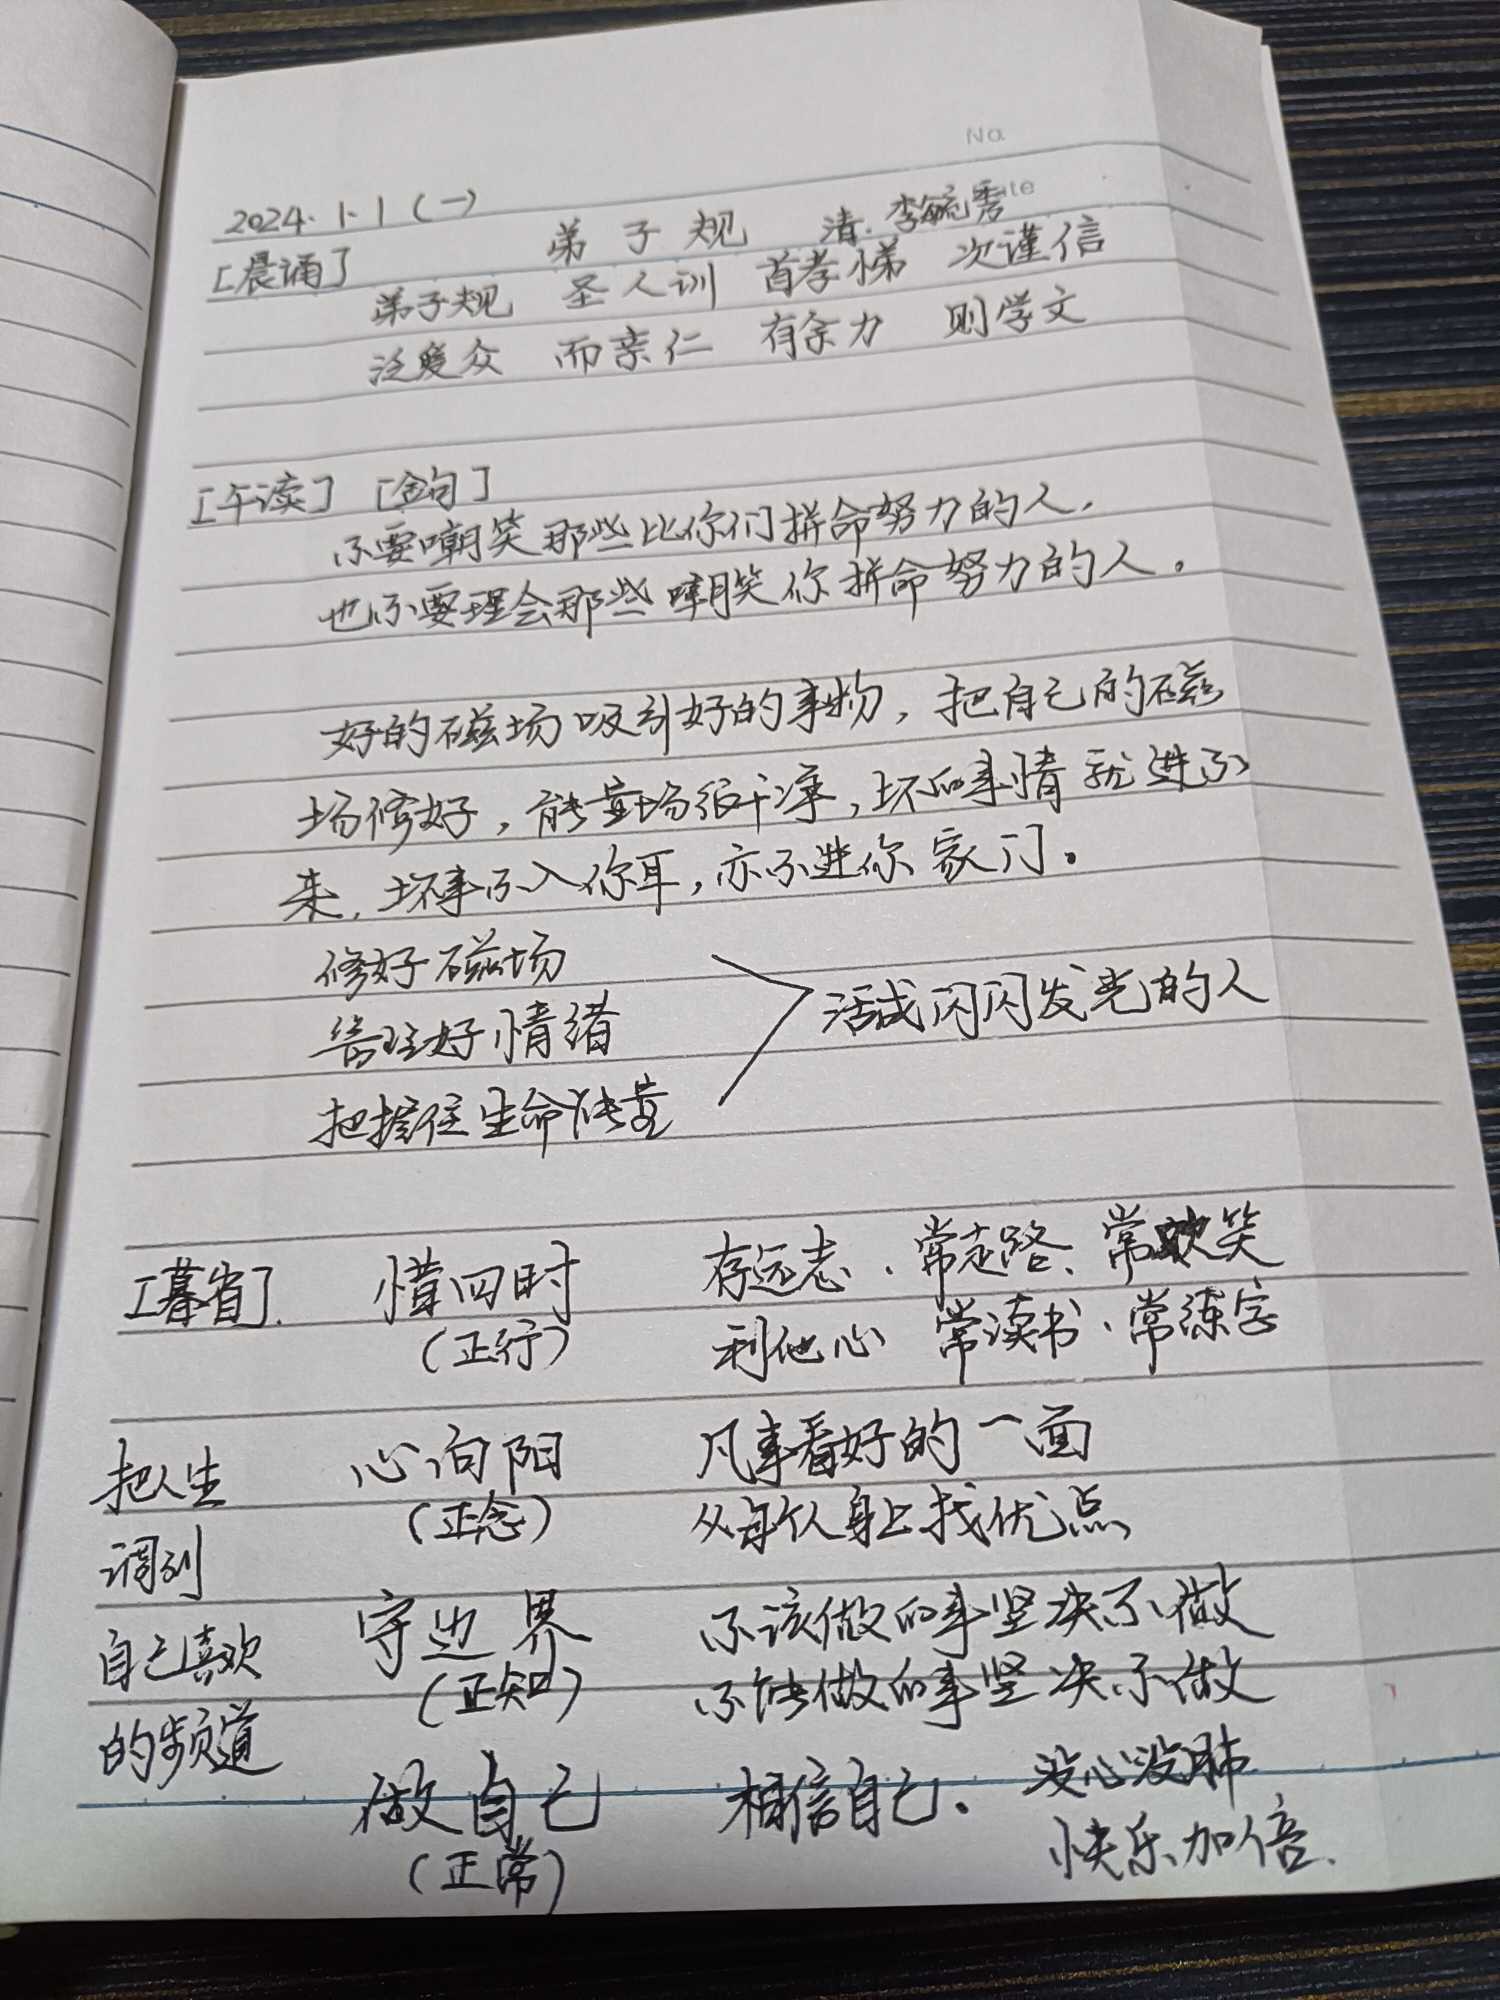 No.
Date
2024.1.1(一)
[晨诵] 弟子规 清.李毓秀
弟子规 圣人训 首孝悌 次谨信
泛爱众 而亲仁 有余力 则学文
[午读] [金句]
不要嘲笑那些比你们拼命努力的人,
也不要理会那些嘲笑你拼命努力的人。
好的磁场吸引好的事物,把自己的磁
场修好,能量场很干净,坏的事情就进不
来,坏事不入你耳,亦不进你家门。
修好磁场
管理好情绪
把握住生命能量
活成闪闪发亮的人
[暮省]. 惜四时 存远志、常走路、常欢笑
(正行) 利他心 常读书、常练字
心向阳 凡事看好的一面
(正念) 从每个人身上找优点
把人生
调到
自己喜欢
的频道
守边界 不该做的事坚决不做
(正知) 不能做的事坚决不做
做自己 相信自己. 没心没肺
(正常) 快乐加倍.